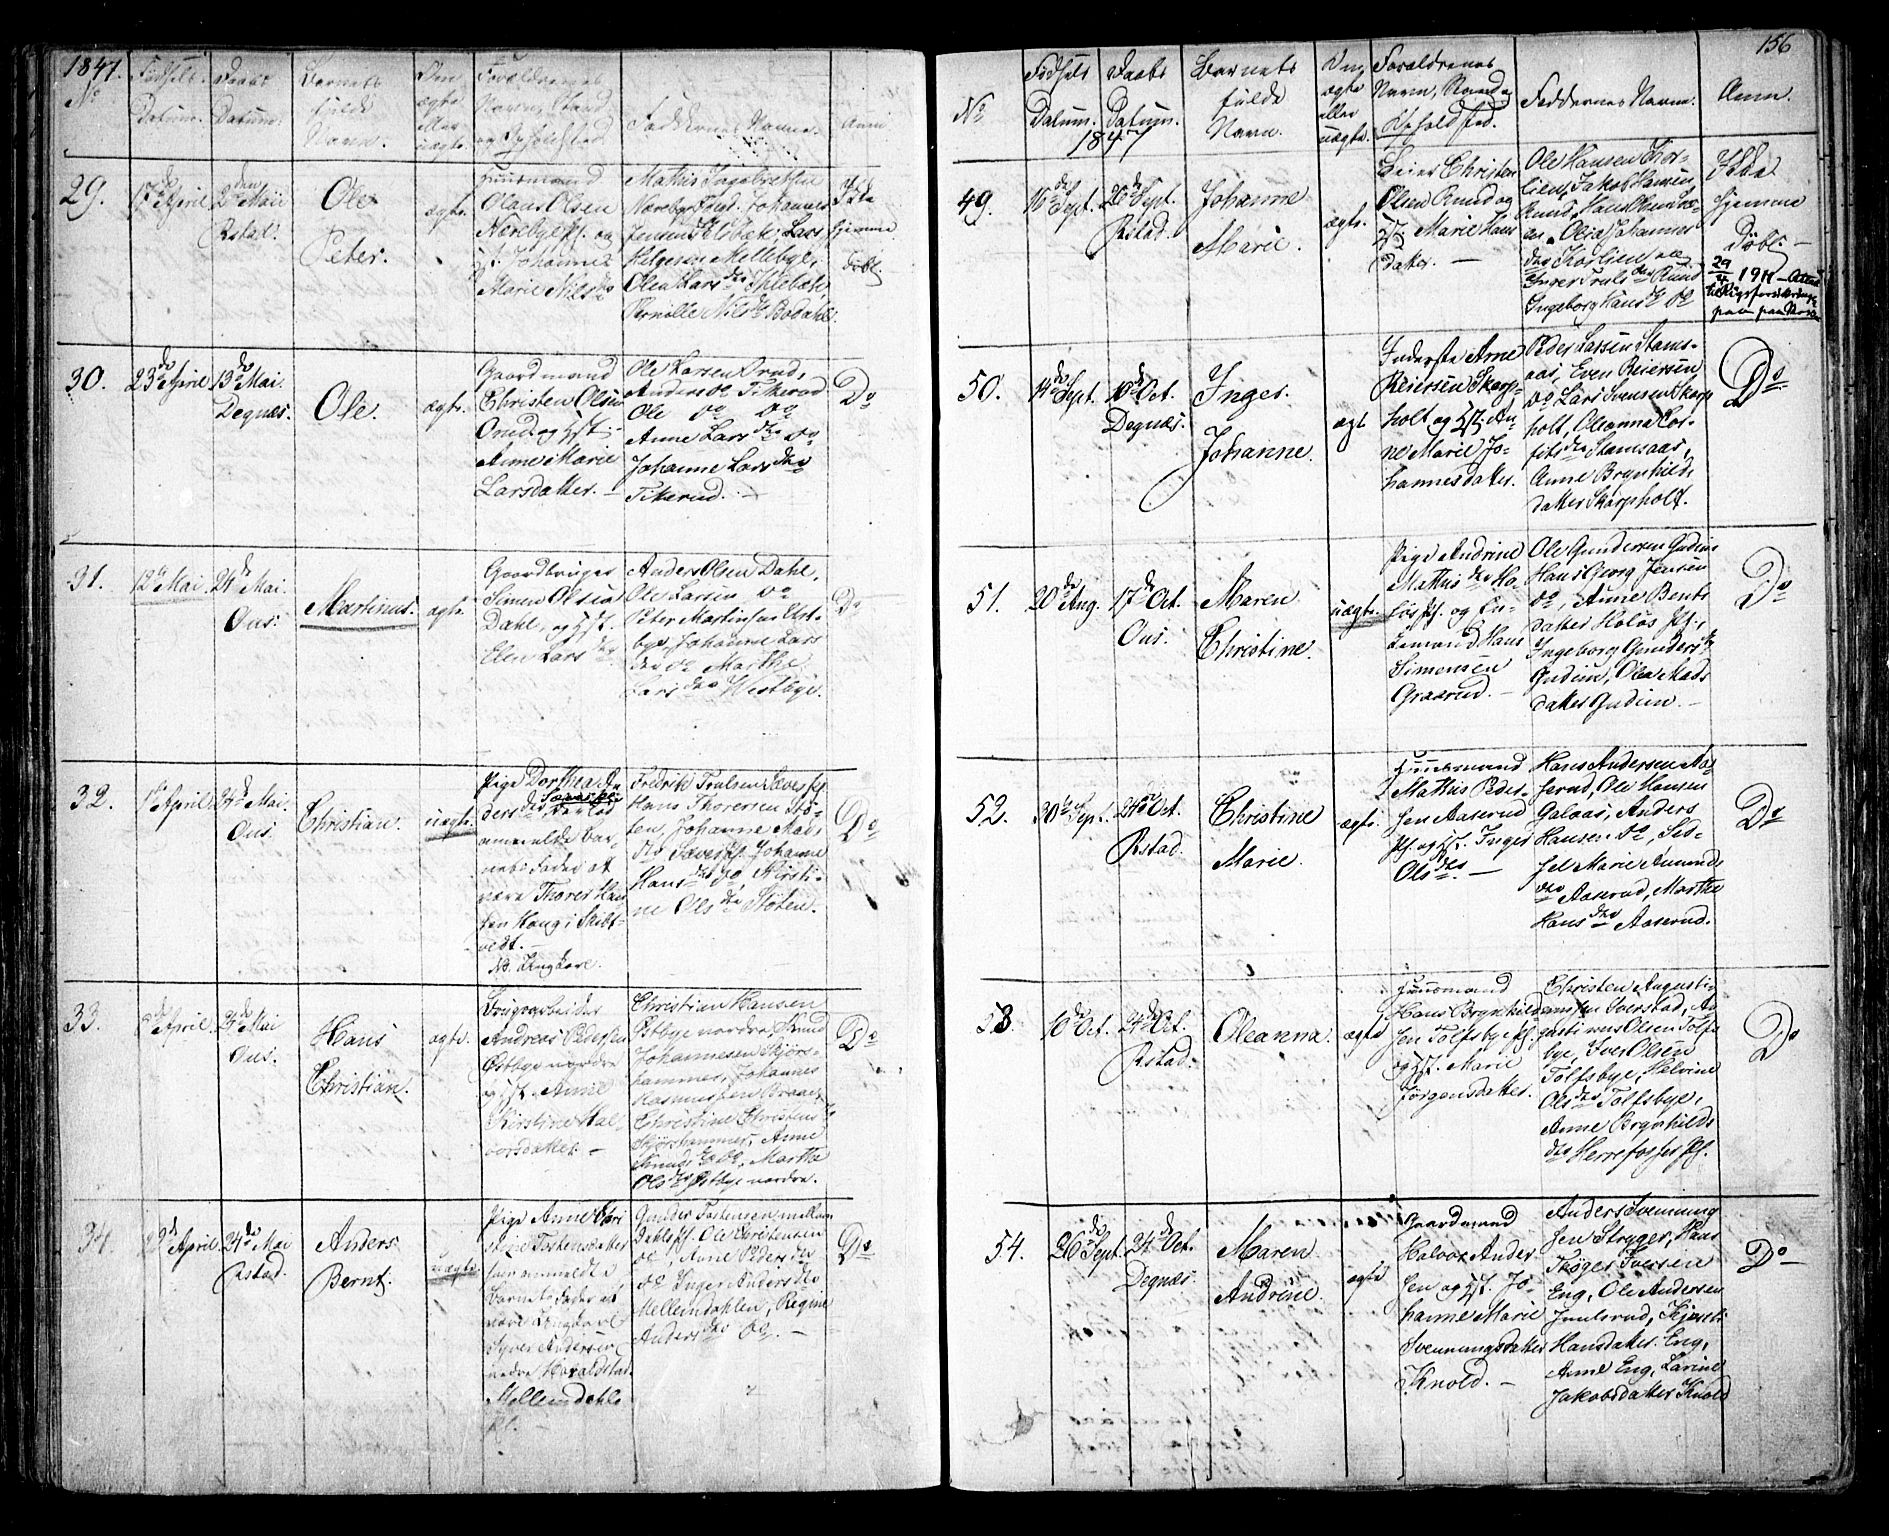 1847.
No
Fødsels
Datum.
Daabs
Datum.
Barnets
fulde
Navn.
Om
ægte
eller
uægte.
Forældrenes
Navn, Stand
og Opholdsted.
Faddernes Navne.
Anm.
29.
17de April
2den Mai
Rstad.
Ole
Peter.
ægte.
Huusmand
Claus Olsen
Nærebye Pl. og
Hst. Johanne
Marie Nilsdr
Mathis Ingebretsen
Nærebye Pl., Johannes
Jensen, Lars
Helgesen Mellebye,
Olea Larsdtr
Pernille Nilsdr Bødahl
Ikke
hjemme
døbt.
30.
23de April
13de Mai.
Degnæs.
Ole.
ægte.
Gaardmand
Christen Olsen
Onrud og Hst.
Anne Marie
Larsdatter. –
Ole Larsen Onrud,
Anders Do Tikerud
Ole Do Do
Anne Larsdtr Do
Johanne Larsdtr
Tikerud. –
Do
31.
12te Mai.
24de Mai.
Ous.
Martinus.
ægte.
Gaardbruger
Simen Olsen
Dahl, og Hst.
Elen Larsdtr
Anders Olsen Dahl,
Ole Larsen Do
Peter Martinsen
bye, Johanne Lars
dtr Do Marthe
Larsdtr Westbye.
Do
32.
1ste April
24de Mai.
Ous.
Christian.
uægte.
Pige Dorthea An
dersdtr
anmeldte Bar
nets Fader at
være Thorer Han
sen Haug i Skibt
vedt. –
NB. Ungkarl.
Fredrik Trulsen Sæves Pl.
Hans Thorersen Stø
ten, Johanne Mads
dtr Sæves Pl. Johanne
Hansdtr Do Kirsti
ne Olsdtr Støten.
Do
33.
8de April.
24de Mai
Ous.
Hans
Christian.
ægte.
Brugsarbeider
Andreas Pedersen
Østbye nordre
og Hst. Anne
Kirstine Hal
vorsdatter. –
Christian Hansen
Østbye nordre, Knud
Johannesen Skjørs
hammer, Johannes
Rasmussen Braae,
Christine Christensdr
Skjørshammer, Anne
Knudsdtr Do, Marthe
Olsdtr Østbye nordre.
Do
34.
22de April
24de Mai
Rstad.
Anders
Bernt.
uægte.
Pige Anne Chri
stine Torstensdatter
har anmeldt
Barnets Fader at
være Ungkarl
Syver Andersen
nedre Haraldstad.
Mellemdahle
Pl.
Gunder Torstensen mellem
Dahle Pl. Ole Christensen
Do, Anne Pedersdtr
Do Inger Andersdtr
Mellemdahlen, Regine
Andersdtr Do. –
Do
156
No
Fødsels
Datum.
Daabs
Datum.
1847
Barnets
fulde
Navn.
Om
ægte
eller
uægte.
Forældrenes
Navn, Stand og
Opholdsted.
Faddernes Navne.
Anm.
49.
16de Sept.
26de Sept.
Rstad.
Johanne
Marie.
ægte.
Leier Christen
Olsen Rund og
Hst. Marie Hans
datter. –
Ole Hansen Kor
lien, Jakob Hansen
Rund, Hans
en, Olea Johannes
dtr Korlien
Inger Trulsdtr Rund
Ingeborg Hansdtr Do
Ikke
hjemme
Døbt. –
29/4 1911 – Attest
til Rigsforsikrings
50.
14de Sept.
10de Oct.
Degnæs.
Inger
Johanne.
ægt
Inderste Arne
Reiersen Skarp
holt og Hst. An
ne Marie Jo
hannesdatter.
Peder Larsen Stams
aas, Even Reiersen
Do Lars Svensen Skarp
holt, Oleanna Tor
Stamsaas,
Anne Brynhilds
datter Skarpholt.
Do
51.
20de Aug.
17de Oct.
Ous.
Maren
Christine.
uægte.
Pige Andrine
Mathisdtr Ho
løs Pl. og En
kemand Hans
Simensen
Graarud. –
Ole Gundersen Gudim
Hans Georg Jensen
Do, Anne Bents
datter Holøs Pl.,
Ingeborg Gundersdtr
Gudim, Olea Mads
datter Gudim. –
Do
52.
30te Sept.
24de Oct.
Rstad.
Christine
Marie.
ægte.
Huusmand
Mathis Peder
sen Aaserud
Pl. og Hst. Inger
Olsdtr. –
Hans Andersen Aa
serud, Ole Hansen
Galaas, Anders
Hansen Do, Sed
sel Marie Amunds
dtr Aaserud, Marthe
Hansdtr Aaserud.
Do
53
10de Oct.
24de Oct.
Rstad.
Oleanna.
ægte
Huusmand
Hans Brynhild
sen Tolfsbye Pl.
og Hst. Marie
Jørgensdatter.
Christen Augusti
nussen Sverstad, Au
gustinus Olsen Tolfs
bye, Iver Olsen
Tolfsbye, Helvine
Olsdtr Tolfsbye,
Anne Brynhilds
dtr Herrefosser Pl.
Do
54.
26de Sept.
24de Oct.
Degnæs.
Maren
Andrine.
ægte
Gaardmand
Halvor Ander
sen og Hst. Jo
hanne Marie
Svenningsdatter
Knold. –
Anders Svenning
sen Stryger, Hans
Thøger Iversen
Eng, Ole Andersen
Juulsrud, Kjersti
Hansdatter Eng,
Anne Eng, Larine
Jakobsdatter Knold
Do –